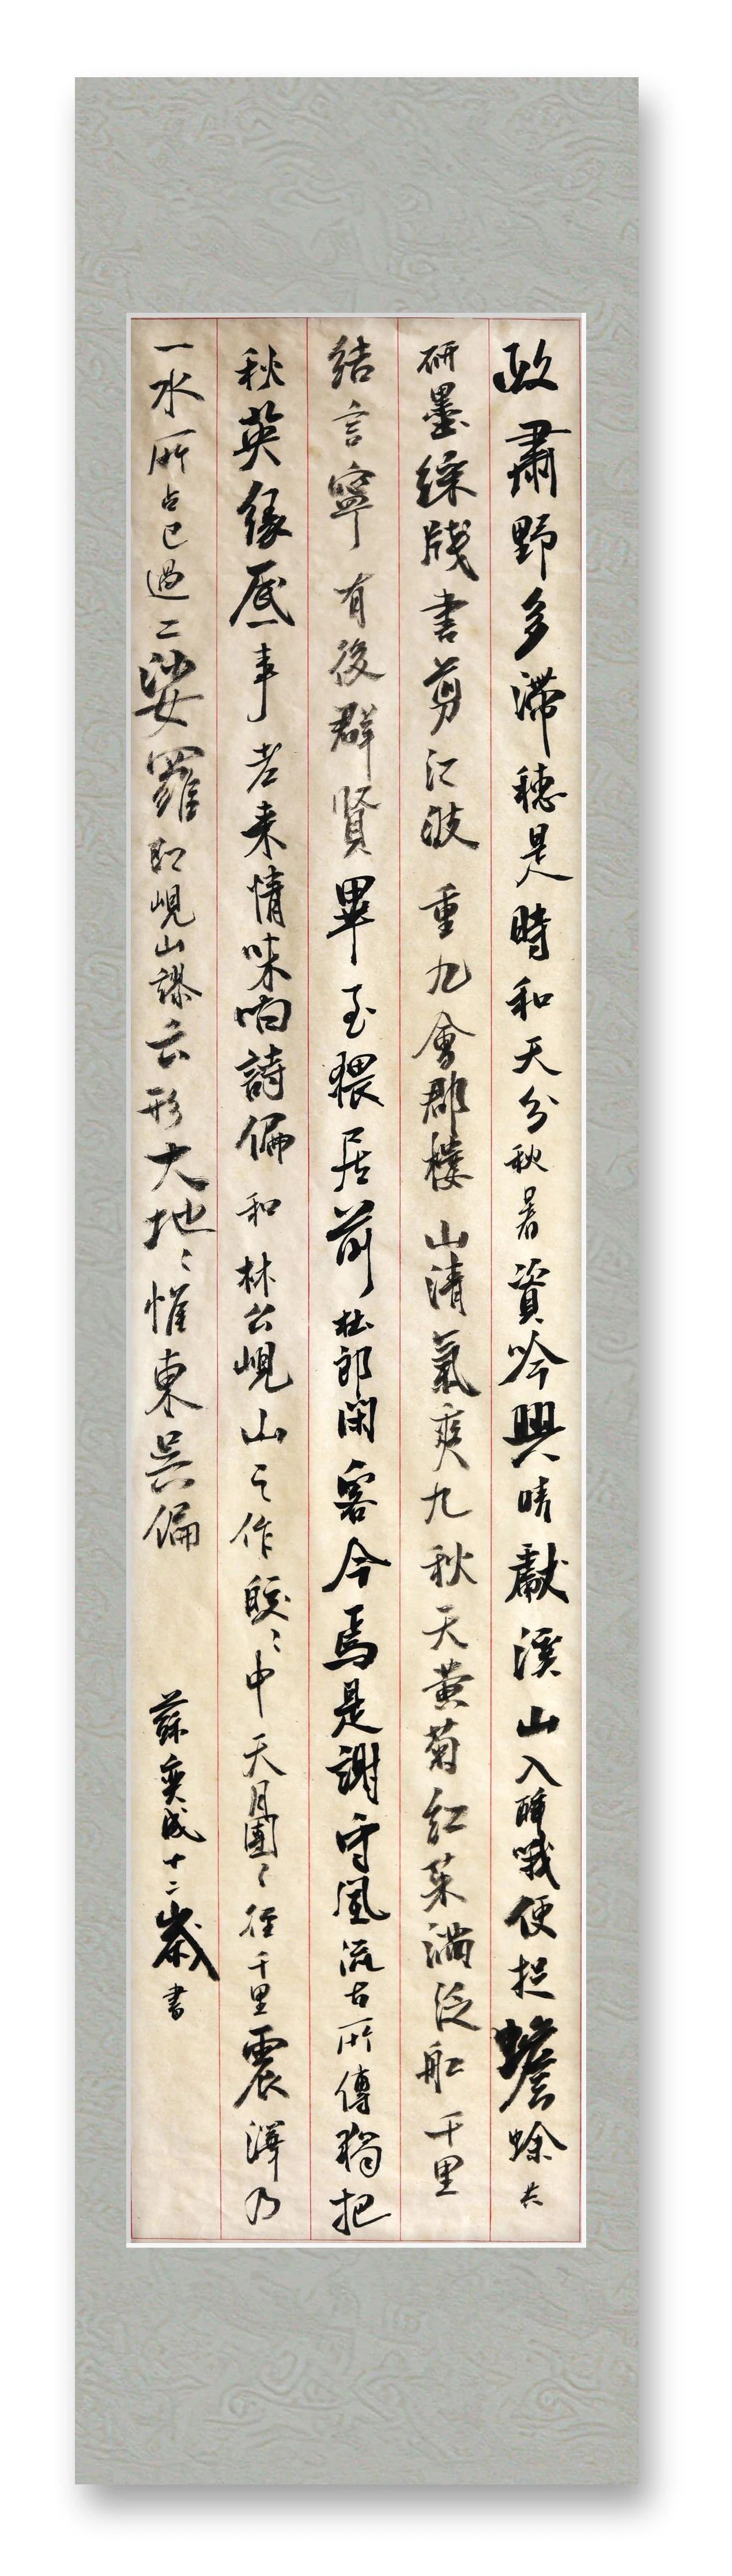 政肅野多滯穗是時和天分秋暑資吟興晴獻溪山入醉哦便捉蟾蜍共
研墨綵牋書剪江波 重九會郡樓 山清氣爽九秋天黃菊紅茱滿泛船千里
結言寧有後群賢畢至猥居前杜郎閑客今焉是謝守風流古所傳獨把
秋英緣底事老来情味向詩偏 和林公峴山之作 皎〻中天月團〻徑千里震澤乃
一水所占已過二娑羅即峴山謬云形大地〻惟東吳偏 蘇奕成十二歲書